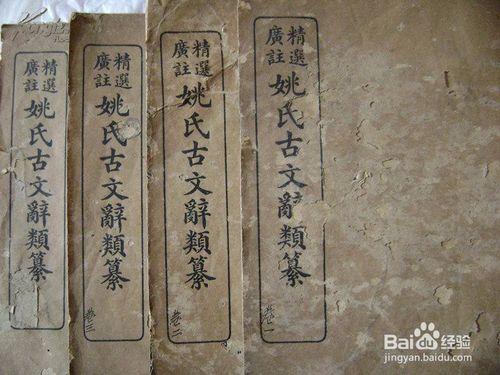 精選
廣註
姚氏古文辭類纂
卷一
精選
廣註
姚氏古文辭類纂
卷二
精選
廣註
姚氏古文辭類纂
卷三
精選
廣註
姚氏古文辭類纂
Baidu经验
jingyan.baidu.com